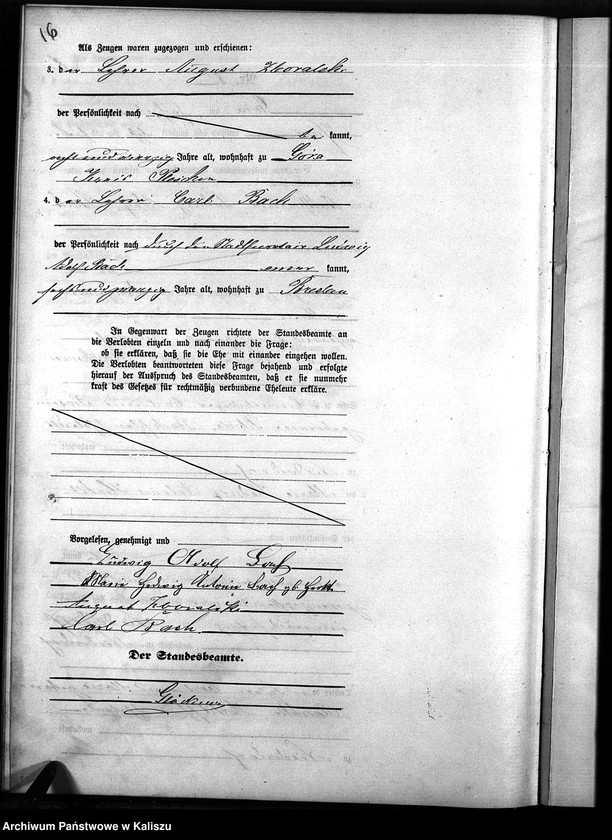 16
Als Zeugen waren zugezogen und erschienen:
3. der Lehrer August
der Persönlichkeit nach
be kannt,
achtundzwanzig Jahre alt, wohnhaft zu Góra
Kreis
4. der Lehrer Carl Bach
der Persönlichkeit nach durch den Stadtsecretair Ludwig
Adolf kannt,
sechsundzwanzig Jahre alt, wohnhaft zu Breslau
In Gegenwart der Zeugen richtete der Standesbeamte an
die Verlobten einzeln und nach einander die Frage:
ob sie erklären, daß sie die Ehe mit einander eingehen wollen.
Die Verlobten beantworteten diese Frage bejahend und erfolgte
hierauf der Ausspruch des Standesbeamten, daß er sie nunmehr
kraft des Gesetzes für rechtmäßig verbundene Eheleute erkläre.
Vorgelesen, genehmigt und
Ludwig Adolf
Marie Hedwig Antonie geb.
August
Karl Bach.
Der Standesbeamte.
Archiwum Państwowe w Kaliszu